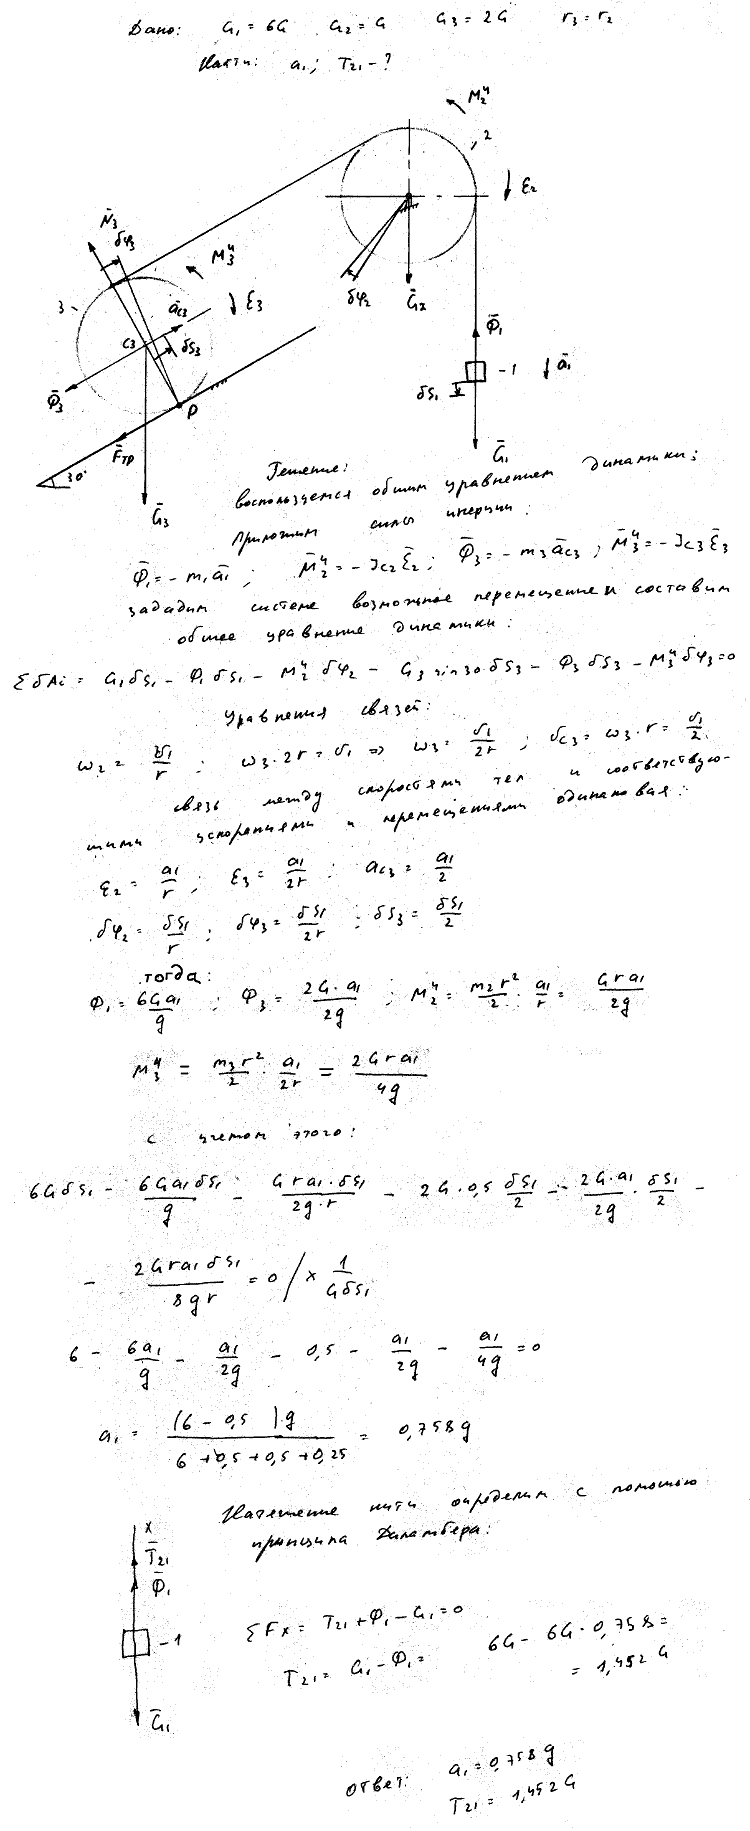 Дано: G₁ = 6G G₂ = G G₃ = 2G r₃ = r₂
Найти: a₁; T₂₁ - ?
M₂ᵘ
2
ε₂
N̄₃
δφ₃
M₃ᵘ
3
ā_C3
ε₃
C₃
δS₃
δφ₂
Ḡ₂
Φ̄₁
- 1
ā₁
δS₁
Φ̄₃
P
F̄тр
30°
Ḡ₃
Ḡ₁
Решение:
воспользуемся общим уравнением динамики;
Приложим силы инерции:
Φ̄₁ = - m₁ā₁; M̄₂ᵘ = - J_C2 ε̄₂; Φ̄₃ = - m₃ā_C3; M̄₃ᵘ = - J_C3 ε̄₃
зададим системе возможное перемещение и составим
общее уравнение динамики:
ΣδAi = G₁δS₁ - Φ₁δS₁ - M₂ᵘ δφ₂ - G₃ sin30 δS₃ - Φ₃δS₃ - M₃ᵘ δφ₃ = 0
Уравнения связей:
ω₂ = v₁/r; ω₃·2r = v₁ ⇒ ω₃ = v₁/2r; v_C3 = ω₃·r = v₁/2
связь между скоростями тел и соответствую-
щими ускорениями и перемещениями одинаковая:
ε₂ = a₁/r; ε₃ = a₁/2r; a_C3 = a₁/2
δφ₂ = δS₁/r; δφ₃ = δS₁/2r; δS₃ = δS₁/2
тогда:
Φ₁ = 6Ga₁/g; Φ₃ = 2G·a₁/2g; M₂ᵘ = m₂r²/2 · a₁/r = Gra₁/2g
M₃ᵘ = m₃r²/2 · a₁/2r = 2Gra₁/4g
с учетом этого:
6GδS₁ - 6Ga₁δS₁/g - Gra₁·δS₁/2g·r - 2G·0,5 δS₁/2 - 2G·a₁/2g · δS₁/2 -
- 2Gra₁δS₁/8gr = 0 / × 1/GδS₁
6 - 6a₁/g - a₁/2g - 0,5 - a₁/2g - a₁/4g = 0
a₁ = (6 - 0,5)g/6 + 0,5 + 0,5 + 0,25 = 0,758g
Натяжение нити определим с помощью
принципа Даламбера:
x
T̄₂₁
Φ̄₁
- 1
Ḡ₁
ΣFx = T₂₁ + Φ₁ - G₁ = 0
T₂₁ = G₁ - Φ₁ = 6G - 6G·0,758 =
= 1,452G
ответ: a₁ = 0,758g
T₂₁ = 1,452G